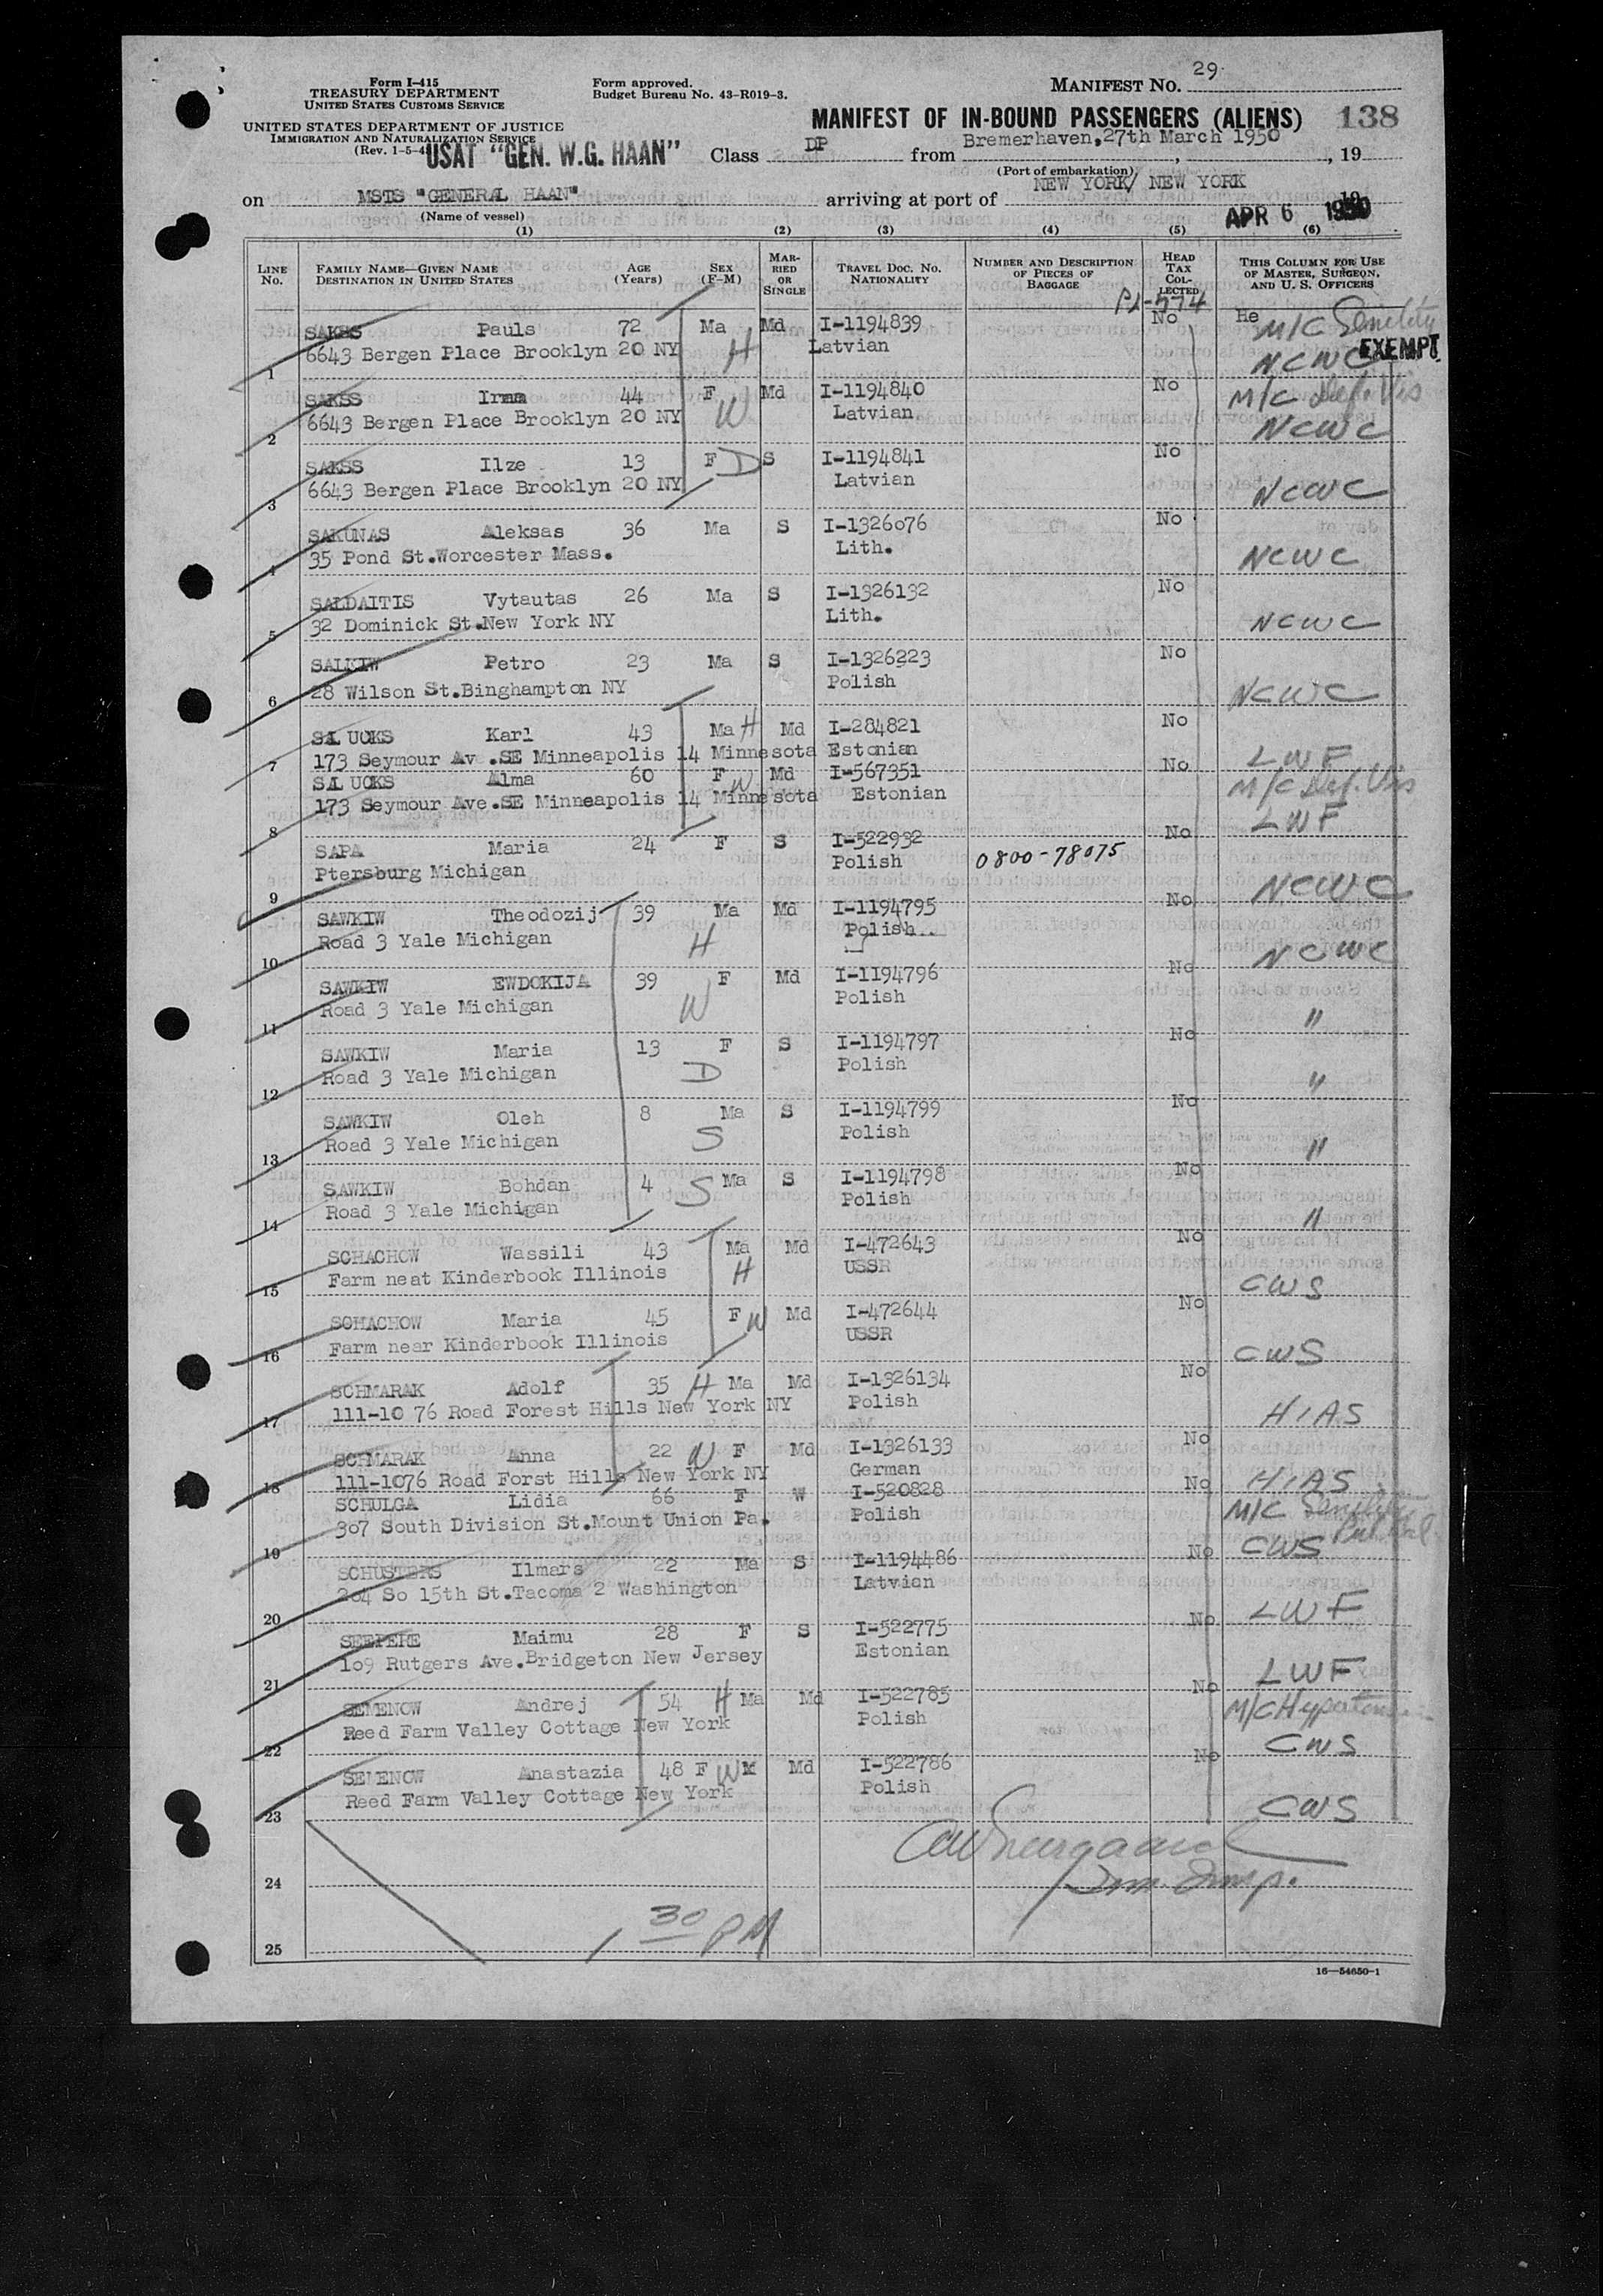 29
Form I-415
TREASURY DEPARTMENT
UNITED STATES CUSTOMS SERVICE
Form approved.
Budget Bureau No. 43-R019-3.
MANIFEST NO.
UNITED STATES DEPARTMENT OF JUSTICE
IMMIGRATION AND NATURALIZATION SERVICE
(Rev. 1-5-48)
MANIFEST OF IN-BOUND PASSENGERS (ALIENS) 138
USAT "GEN. W.G. HAAN" Class DP from Bremerhaven,27th March 1950, 19
(Port of embarkation)
on MSTS "GENERAL HAAN" arriving at port of NEW YORK/ NEW YORK
(Name of vessel)
APR 6 1950
(1) (2) (3) (4) (5) (6)
LINE NO. FAMILY NAME—GIVEN NAME DESTINATION IN UNITED STATES AGE (Years) SEX (F-M) MARRIED OR SINGLE TRAVEL DOC. NO. NATIONALITY NUMBER AND DESCRIPTION OF PIECES OF BAGGAGE HEAD TAX COLLECTED THIS COLUMN FOR USE OF MASTER, SURGEON, AND U. S. OFFICERS
SAKSS Pauls 72 Ma Md I-1194839 No He M/C Senility
1 6643 Bergen Place Brooklyn 20 NY H Latvian NCWC EXEMPT
SAKSS Irma 44 F Md I-1194840 No M/C Def. Vis
2 6643 Bergen Place Brooklyn 20 NY W Latvian NCWC
SAKSS Ilze 13 F D S I-1194841 No
3 6643 Bergen Place Brooklyn 20 NY Latvian NCWC
SAKUNAS Aleksas 36 Ma S I-1326076 No
4 35 Pond St.Worcester Mass. Lith. NCWC
SALDAITIS Vytautas 26 Ma S I-1326132 No
5 32 Dominick St.New York NY Lith. NCWC
SALKIW Petro 23 Ma S I-1326223 No
6 28 Wilson St.Binghampton NY Polish NCWC
SALUCKS Karl 43 Ma H Md I-284821 No
7 173 Seymour Av .SE Minneapolis 14 Minnesota Estonian LWF
SALUCKS Alma 60 F W Md I-567351 No M/C Def. Vis
8 173 Seymour Ave.SE Minneapolis 14 Minnesota Estonian LWF
SAPA Maria 24 F S I-522932 No
9 Ptersburg Michigan Polish 0800-78075 NCWC
SAWKIW Theodozij 39 Ma Md I-1194795 No
10 Road 3 Yale Michigan H Polish NCWC
SAWKIW EWDOKIJA 39 F Md I-1194796 No
11 Road 3 Yale Michigan W Polish "
SAWKIW Maria 13 F S I-1194797 No
12 Road 3 Yale Michigan D Polish "
SAWKIW Oleh 8 Ma S I-1194799 No
13 Road 3 Yale Michigan S Polish "
SAWKIW Bohdan 4 S Ma S I-1194798 No
14 Road 3 Yale Michigan Polish "
SCHACHOW Wassili 43 Ma Md I-472643 No
15 Farm neat Kinderbook Illinois H USSR CWS
SCHACHOW Maria 45 F W Md I-472644 No
16 Farm near Kinderbook Illinois USSR CWS
SCHMARAK Adolf 35 H Ma Md I-1326134 No
17 111-10 76 Road Forest Hills New York NY Polish HIAS
SCHMARAK Anna 22 W F Md I-1326133 No
18 111-1076 Road Forst Hills New York NY German HIAS
SCHULGA Lidia 66 F W I-520828 No M/C Senility
19 307 South Division St.Mount Union Pa. Polish CWS
SCHUSTERS Ilmars 22 Ma S I-1194486 No
20 204 So 15th St.Tacoma 2 Washington Latvian LWF
SEEPERE Maimu 28 F S I-522775 No
21 109 Rutgers Ave.Bridgeton New Jersey Estonian LWF
SEMENOW Andrej 54 H Ma Md I-522785 No M/C Hypertension
22 Reed Farm Valley Cottage New York Polish CWS
SEMENOW Anastazia 48 F W M Md I-522786 No
23 Reed Farm Valley Cottage New York Polish CWS
24 Imm. Insp.
25 1 30 PM
16—54650-1